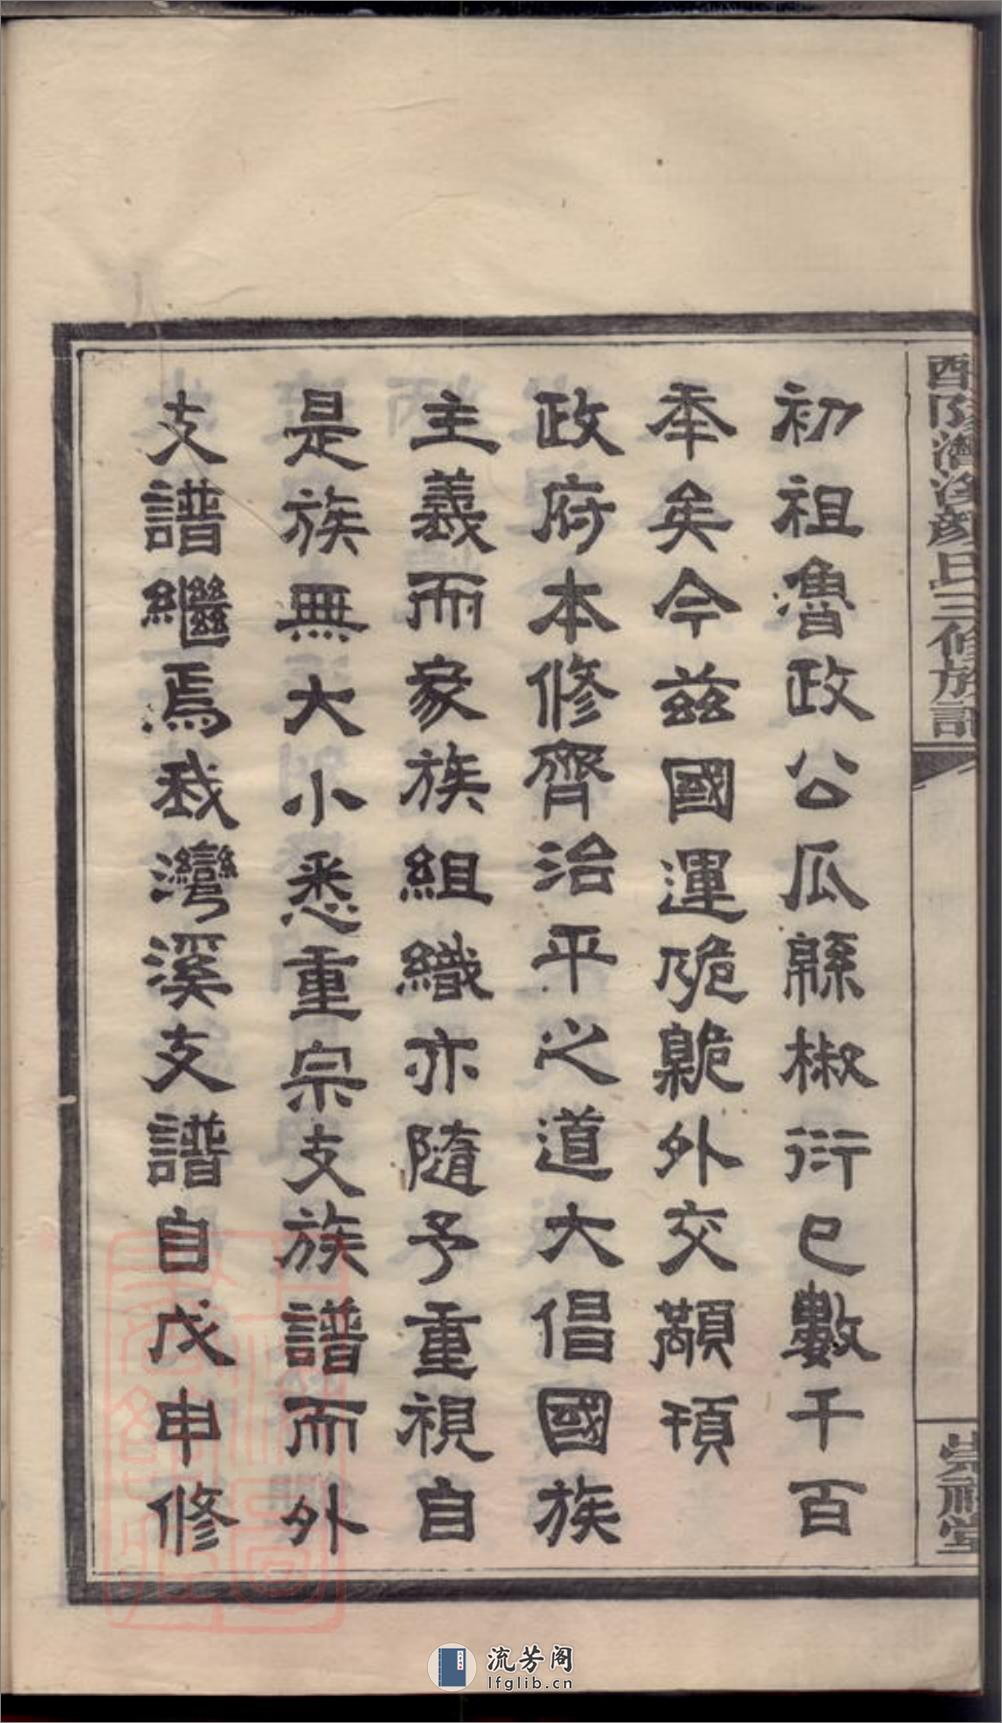 初祖魯政公瓜緜椒衍已數千百
年矣今茲國運阢臲外交顢頇
政府本修齊治平之道大倡國族
主義而家族組織亦隨予重視自
是族無大小悉重宗支族譜而外
支譜繼焉我灣溪支譜自戊申修
顏氏三修族譜
崇福堂
流芳阁
lfglib.cn